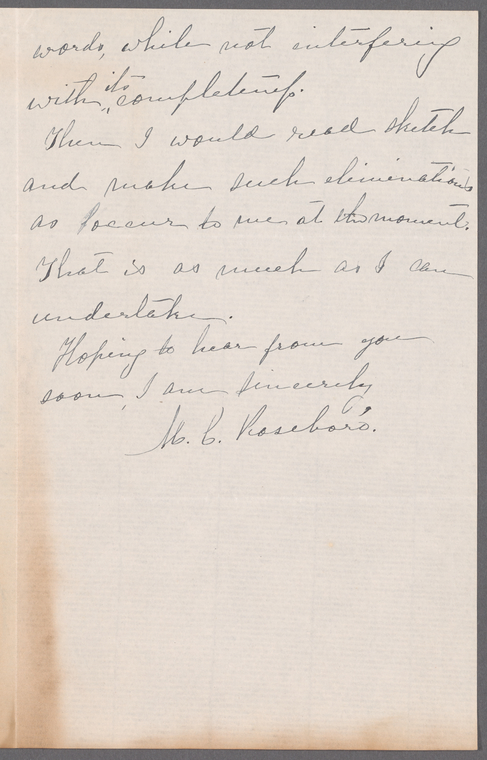 words, while not interfering
with its completeness.
Then I would read sketch
and make such eliminations
as occur to me at the moment.
That is as much as I can
undertake.
Hoping to hear from you
soon, I am sincerely
M. C. Roseboro'.